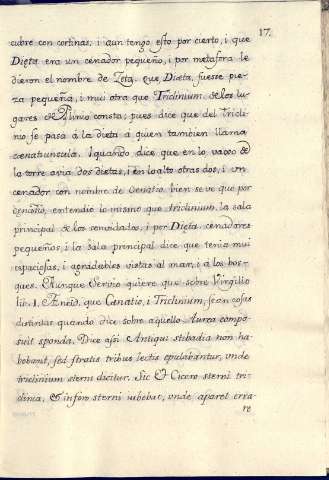 17.
cubre con cortinas, i aun tengo esto por cierto, i que
Dięta era un cenador pequeño, i por metafora le
dieron el nombre de Zeta. Que Diæta, fuesse pie-
za pequeña, i mui otra que Triclinium de los lu-
gares de Plinio consta; pues dice que del Tricli-
nio se pasa á la dieta a quien tambien llama
cenatiuncula. I quando dice que en lo vaxo de
la torre avia dos dietas, i en lo alto otras dos, i un
cenador con nombre de Cenatio, bien se ve que por
cenatio, entendio lo mismo que triclinium, la sala
principal de los convidados, i por Dięta, cenadores
pequeños, i la sala prencipal dice que tenia mui
espaciosas, i agradables vistas al mar, i a los bos-
ques. Aunque Servio quiere que sobre Virgilio
lib. 1. Æneid. que Cenatio, i Triclinium, sean cosas
distintas quando dice sobre aquello Aurea compo-
suit sponda. Dice assi Antiqui stibadia non ha-
bebant, sed stratis tribus lectis epulabantur, unde
triclinium sterni dicitur. Sic & Cicero sterni tri-
clinia, & in foro sterni iubebat, unde aparet erra
re